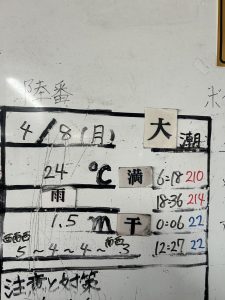 陸番
4/8(月) 大潮
24 ℃ 満 6:18 210
雨 18:36 214
1.5 m 干 0:06 22
西南西 南西
5~4~4~3 12:27 22
注意と対策